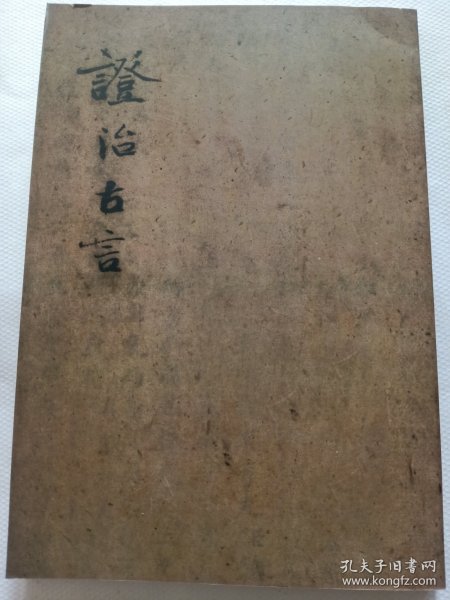 證治古言
孔夫子旧书网
www.kongfz.com